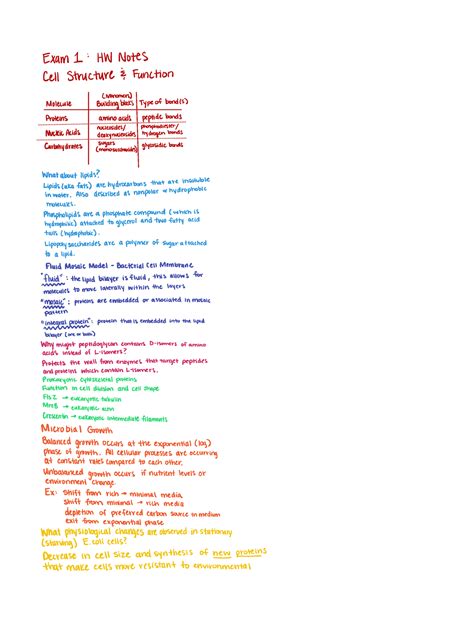 Exam 1: HW Notes
Cell Structure & Function
Molecule (Monomers) Building blocks Type of bond(s)
Proteins amino acids peptide bonds
Nucleic Acids nucleosides/ deoxynucleosides phosphodiester/ hydrogen bonds
Carbohydrates sugars (monosaccharides) glycosidic bonds
What about lipids?
Lipids (aka fats) are hydrocarbons that are insoluble
in water. Also described as nonpolar or hydrophobic
molecules.
Phospholipids are a phosphate compound (which is
hydrophilic) attached to glycerol and two fatty acid
tails (hydrophobic).
Lipopolysaccharides are a polymer of sugar attached
to a lipid.
Fluid Mosaic Model - Bacterial Cell Membrane
"fluid": the lipid bilayer is fluid, this allows for
molecules to move laterally within the layers
"mosaic": proteins are embedded or associated in mosaic
pattern
"integral protein": protein that is embedded into the lipid
bilayer (one or both)
Why might peptidoglycan contains D-isomers of amino
acids instead of L-isomers?
Protects the wall from enzymes that target peptides
and proteins which contain L-isomers.
Prokaryotic cytoskeletal proteins
Function in cell division and cell shape
FtsZ → eukaryotic tubulin
MreB → eukaryotic actin
Crescentin → eukaryotic intermediate filaments
Microbial Growth
Balanced growth occurs at the exponential (log)
phase of growth. All cellular processes are occurring
at constant rates compared to each other.
Unbalanced growth occurs if nutrient levels or
environment change.
Ex: shift from rich → minimal media
shift from minimal → rich media
depletion of preferred carbon source in medium
exit from exponential phase
What physiological changes are observed in stationary
(starving) E. coli cells?
Decrease in cell size and synthesis of new proteins
that make cells more resistant to environmental